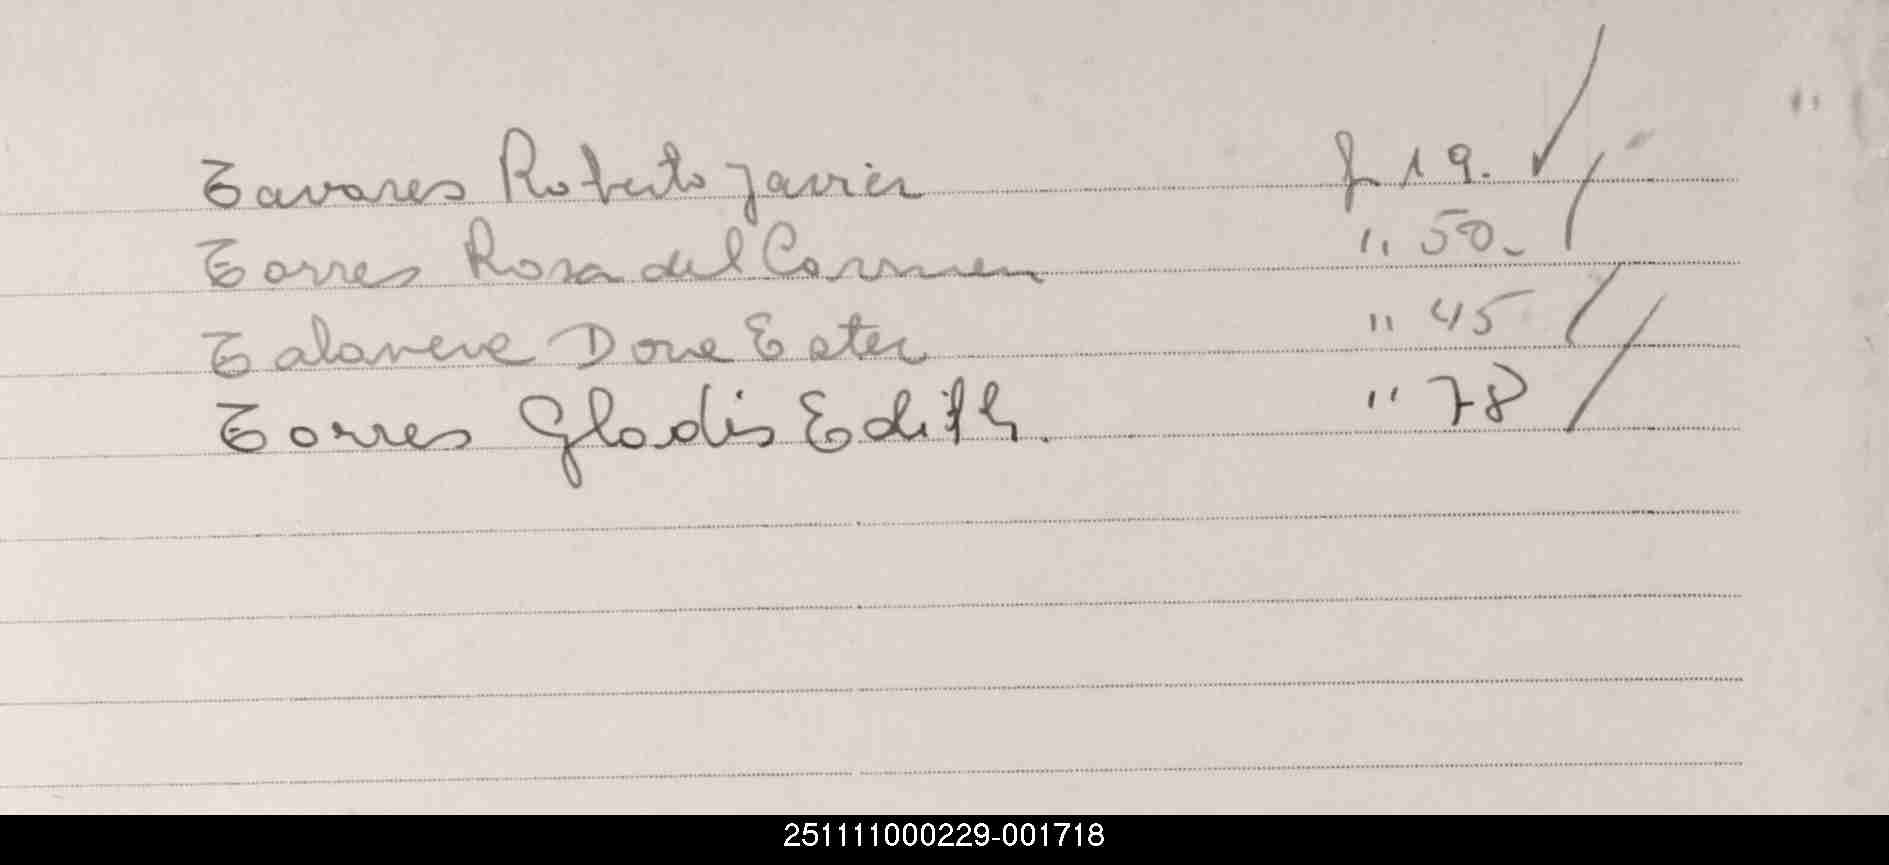 Tavares Roberto Javier f 19.
Torres Rosa del Carmen " 50.
Talavera Dora Ester " 45
Torres Gladis Edith. " 78
251111000229-001718